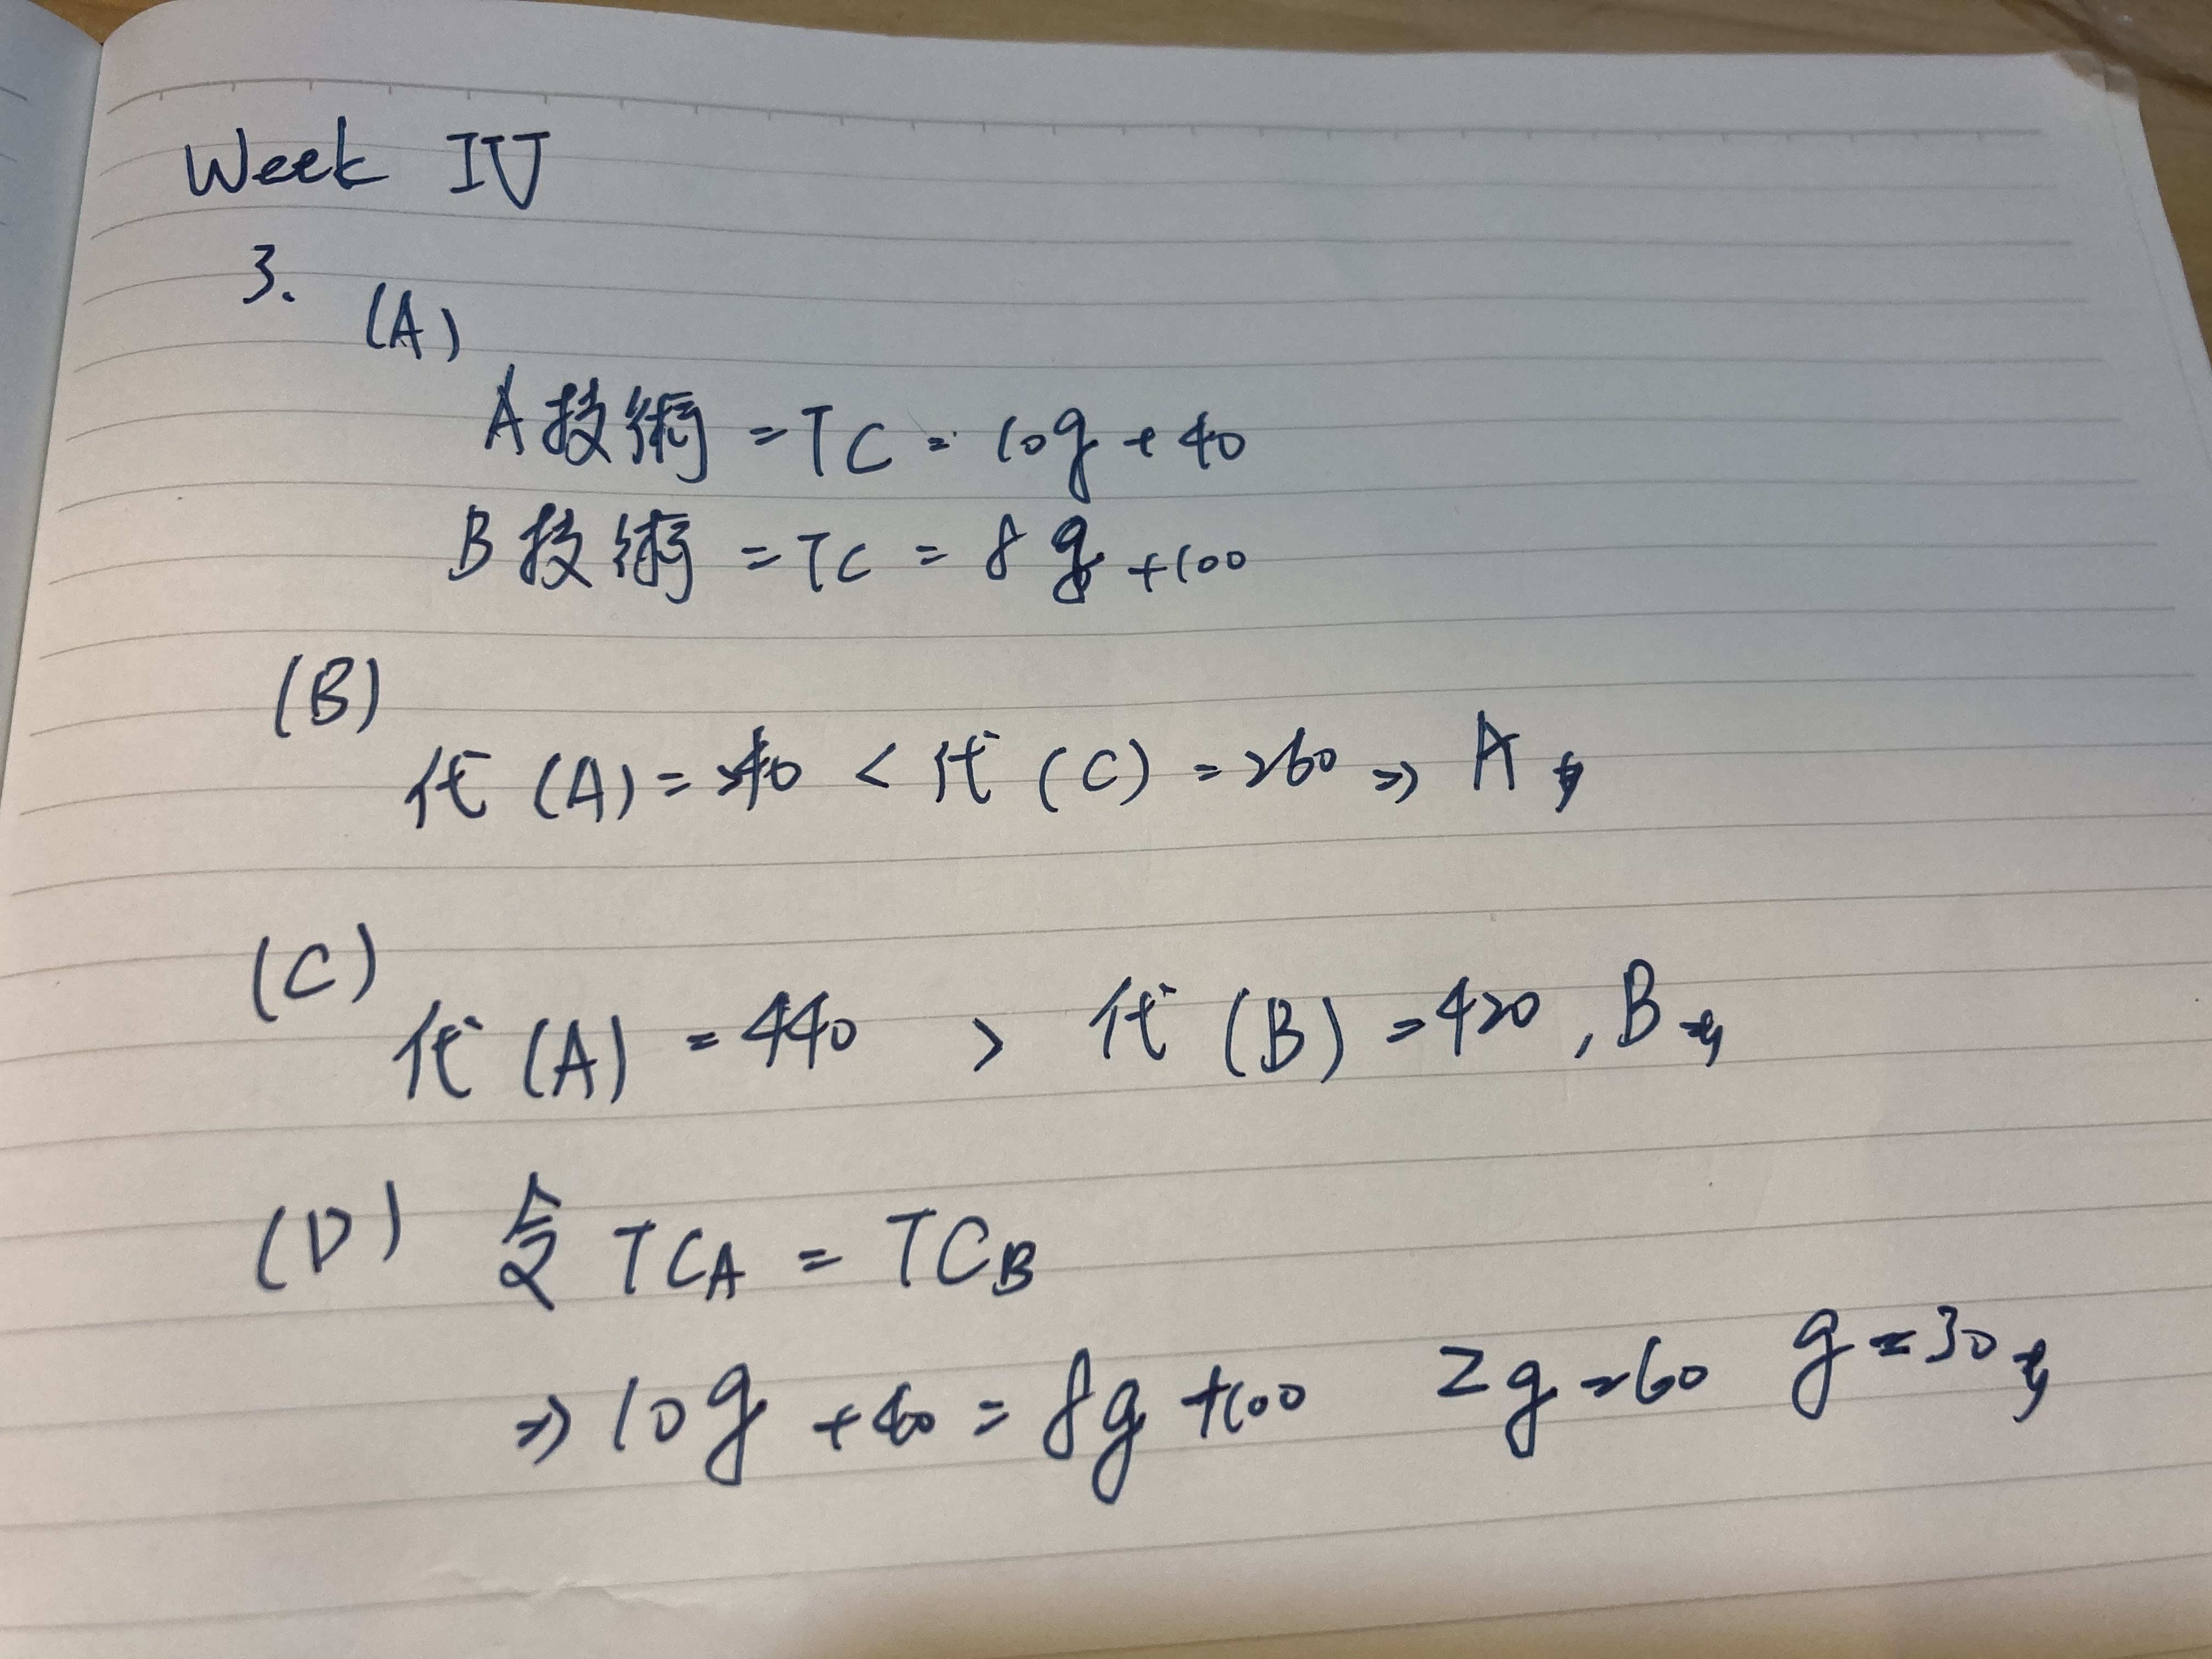 Week IV
3.
(A)
A技術 = TC = 10q + 40
B技術 = TC = 8q +100
(B)
代 (A) = 240 < 代 (C) = 260 ⇒ A
(C)
代 (A) = 440 > 代 (B) = 420 , B
(D) 令 TCA = TCB
⇒ 10q + 40 = 8q +100 2q = 60 q = 30